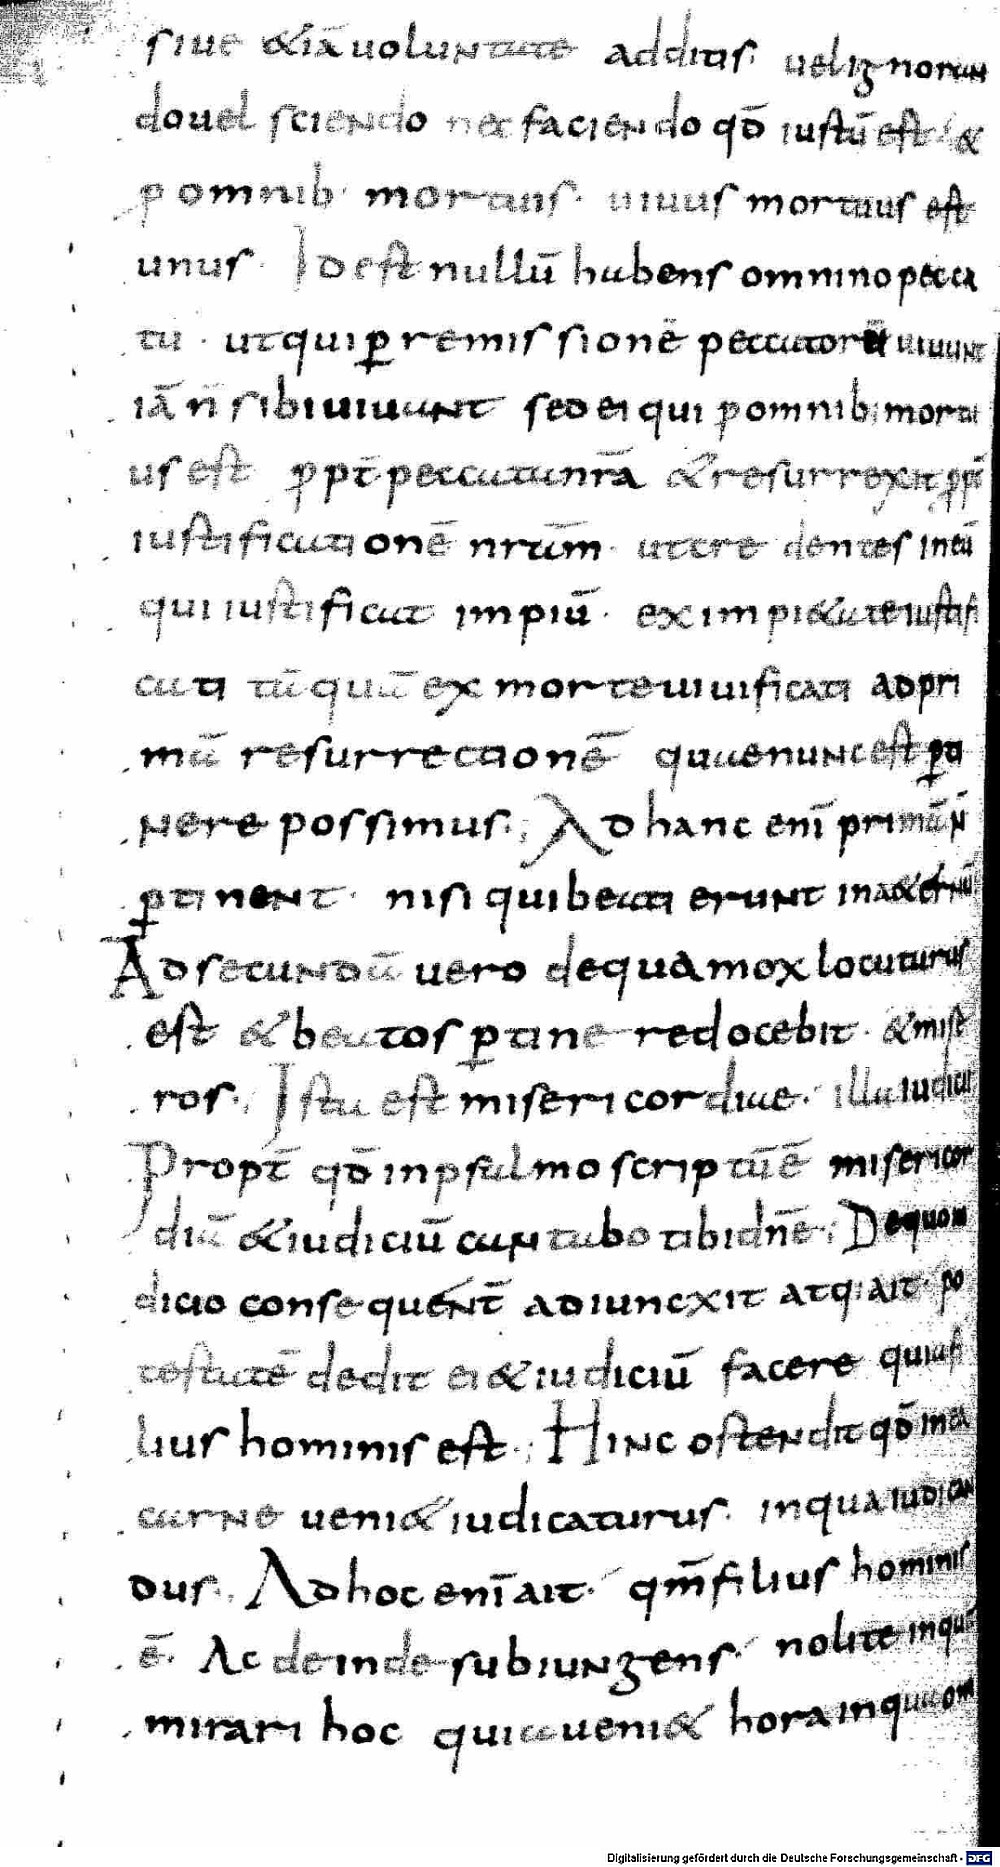 siue &iā uoluntate additis. uel ignoran
do uel sciendo nec faciendo qđ iustū est. &
p omnib; mortuis. uiuus mortuus est
unus. Id est nullū habens omnino pecca
tū. ut qui p remissionē peccatorū uiuunt
iā n̄ sibi uiuant sed ei qui p omnib; mortu
us est ppt̄ peccata nr̄a & resurrexit ppt̄
iustificationē nr̄am. ut credentes in eū
qui iustificat impiū. ex impi&ate iustifi
cati tāquā ex morte uiuificati ad pri
mā resurrectionē quae nunc est pti
nere possimus. Ad hanc enī primā n̄
ptinent. nisi qui beati erunt in a&ernū
Ad secundā uero de qua mox locuturus
est & beatos ptinere docebit. & mise
ros. Ista est misericordiae. illa iudicii
Propt̄ qđ in psalmo scriptū ē misericor
diā & iudiciū cantabo tibi dn̄e. De quo iu
dicio consequent̄ adiuncxit atq; ait. po
testatē dedit ei & iudiciū facere quia fi
lius hominis est. Hinc ostendit qđ in ea
carne ueni& iudicaturus. in qua iudican
dus. Ad hoc enī ait. qm̄ filius hominis
ē. Ac deinde subiungens. nolite inquit
mirari hoc quia ueni& hora in qua om
Digitalisierung gefördert durch die Deutsche Forschungsgemeinschaft - DFG